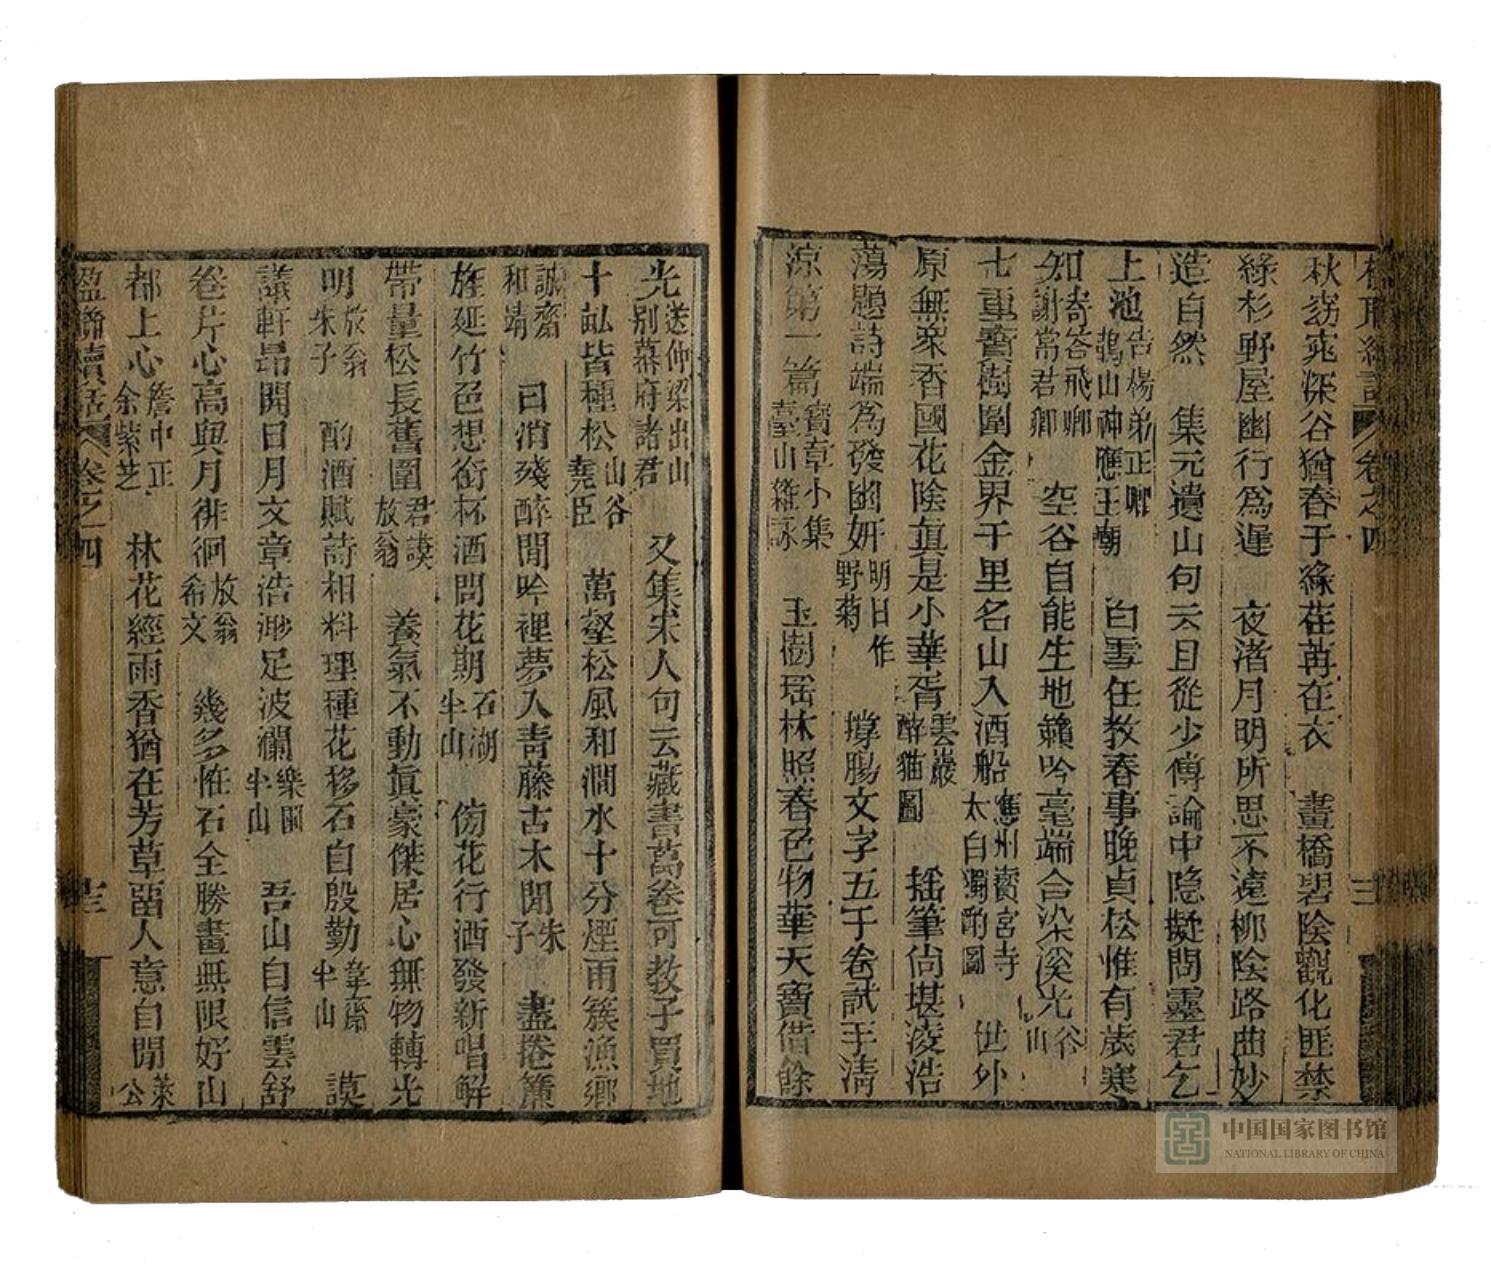 楹聯續話 卷之四 三
秋窈窕深谷猶春于綠荏苒在衣　畫橋碧陰觀化匪禁
綠杉野屋幽行爲遲　夜渚月明所思不遠柳陰路曲妙
造自然　集元遺山句云且從少傳論中隱擬問靈君乞
上池告楊弟正卿鵲山神應王廟　白雪任教春事晚貞松惟有歲寒
知寄答飛卿謝常君卿　空谷自能生地籟吟毫端合染溪光谷山
七重寶樹圍金界千里名山入酒船應州寶宮寺太白獨酌圖　世外
原無衆香國花陰眞是小華胥雲巖醉猫圖　搖筆尙堪凌浩
蕩題詩端爲發幽妍明日作野菊　撐腸文字五千卷試手淸
涼第一篇寶章小集臺山雜詠　玉樹瑶林照春色物華天寶借餘
光送仲梁出山別幕府諸君　又集宋人句云藏書萬卷可教子買地
十畆皆種松山谷堯臣　萬壑松風和澗水十分煙雨簇漁鄕
誠齋和靖　日消殘醉閒吟裡夢入靑藤古木閒朱子　盡捲簾
旌延竹色想銜杯酒問花期石湖半山　傍花行酒發新唱解
帶量松長舊圍君謨放翁　養氣不動眞豪傑居心無物轉光
明放翁朱子　酌酒賦詩相料理種花移石自殷勤葦齋半山　謨
議軒昻開日月文章浩渺足波瀾樂園半山　吾山自信雲舒
卷片心高與月徘徊放翁希文　幾多怪石全勝畫無限好山
都上心詹中正余紫芝　林花經雨香猶在芳草畱人意自閒萊公
楹聯續話 卷之四
中国国家图书馆
NATIONAL LIBRARY OF CHINA